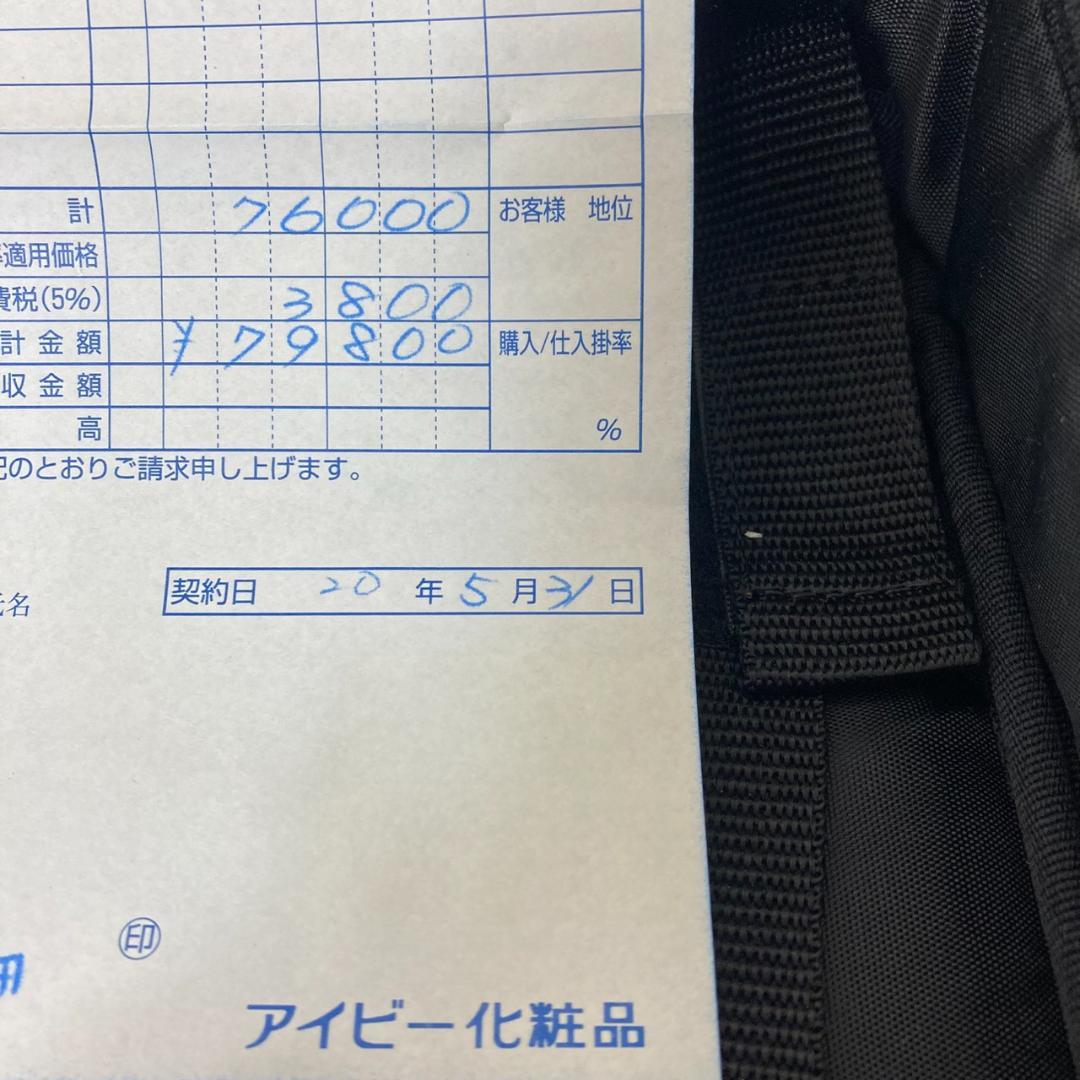 計 76000 お客様 地位
適用価格
費税(5%) 3800
計金額 ¥79800 購入/仕入掛率
収金額
高 %
記のとおりご請求申し上げます。
氏名 契約日 20年5月31日
印
アイビー化粧品